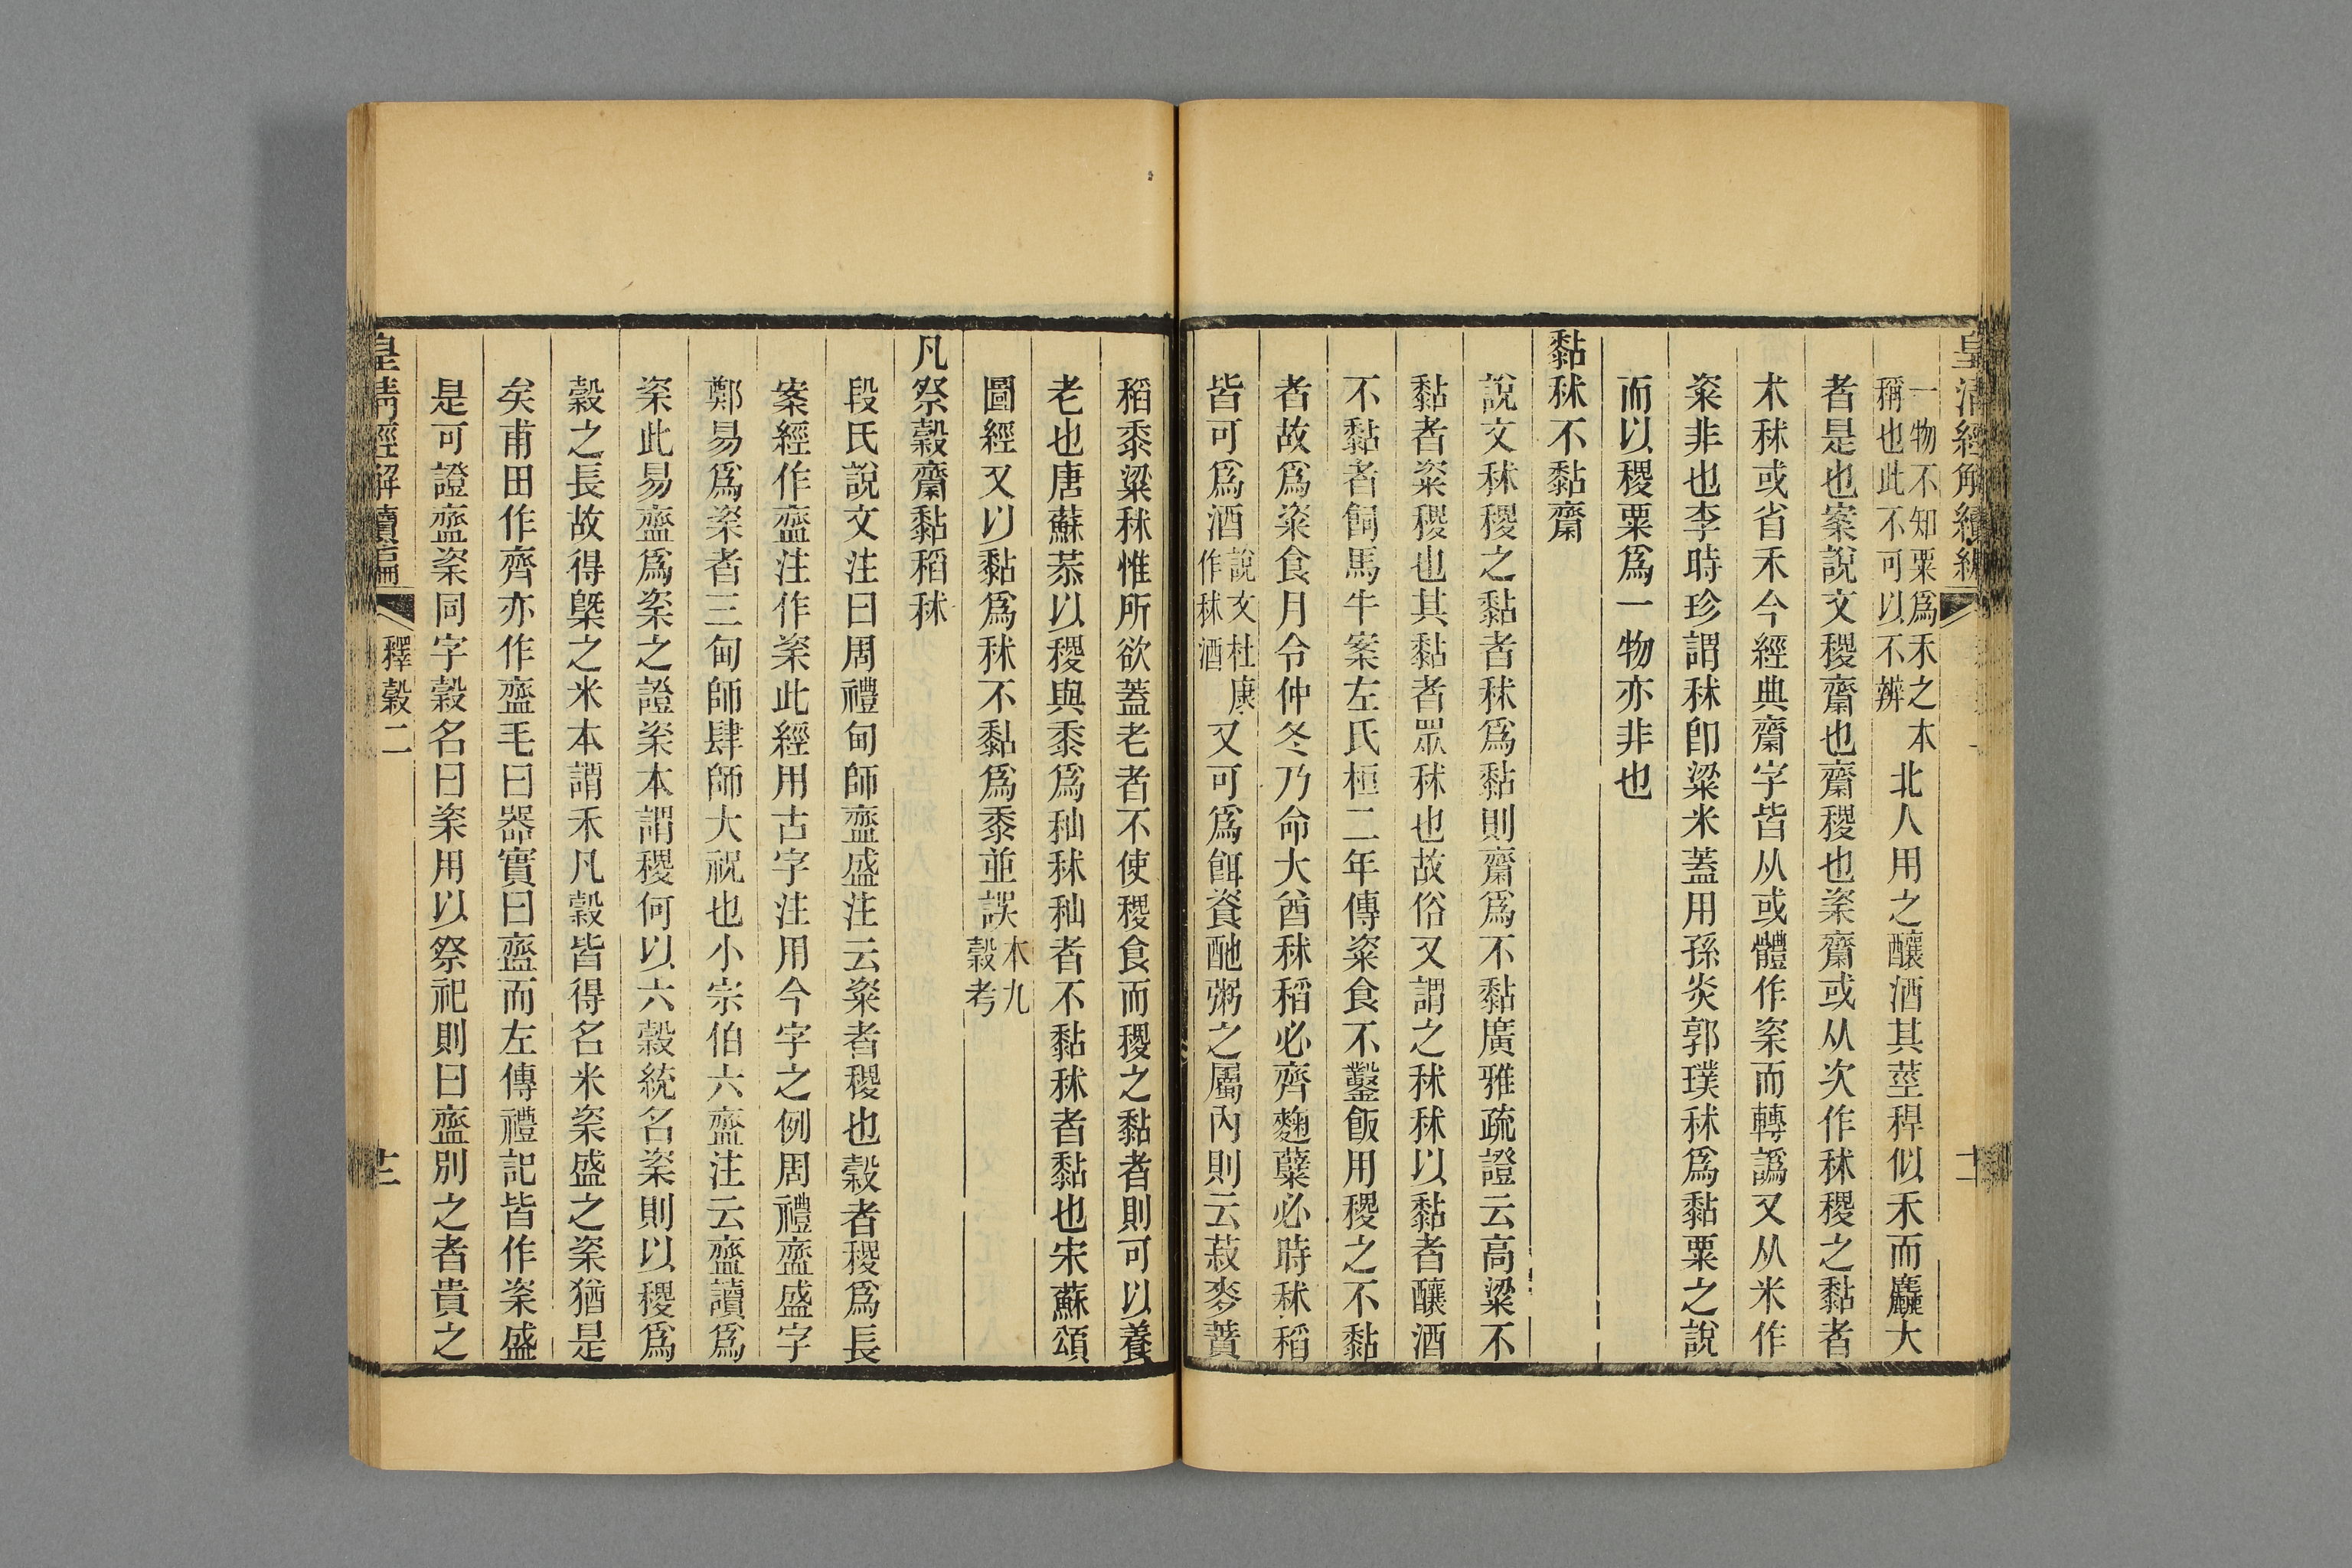 皇清經解續編
一物不知粟爲禾之本
稱也此不可以不辨
北人用之釀酒其莖稈似禾而麤大
者是也案說文稷齋也齋稷也粢齋或从次作秫稷之黏者
术秫或省禾今經典齋字皆从或體作粢而轉譌又从米作
粢非也李時珍謂秫卽粱米蓋用孫炎郭璞秫爲黏粟之說
而以稷粟爲一物亦非也
黏秫不黏齋
說文秫稷之黏者秫爲黏則齋爲不黏廣雅疏證云高粱不
黏者粢稷也其黏者眾秫也故俗又謂之秫秫以黏者釀酒
不黏者飼馬牛案左氏桓二年傳粢食不鑿飯用稷之不黏
者故爲粢食月令仲冬乃命大酋秫稻必齊麴糵必時秫稻
皆可爲酒
說文杜康
作秫酒
又可爲餌餈酏粥之屬內則云菽麥蕡
稻黍粱秫惟所欲蓋老者不使稷食而稷之黏者則可以養
老也唐蘇恭以稷與黍爲秈秫秈者不黏秫者黏也宋蘇頌
圖經又以黏爲秫不黏爲黍並誤
本九
穀考
凡祭穀齋黏稻秫
段氏說文注曰周禮甸師齍盛注云粢者稷也穀者稷爲長
案經作齍注作粢此經用古字注用今字之例周禮齍盛字
鄭易爲粢者三甸師肆師大祝也小宗伯六齍注云齍讀爲
粢此易齍爲粢之證粢本謂稷何以六穀統名粢則以稷爲
穀之長故得槩之米本謂禾凡穀皆得名米粢盛之粢猶是
矣甫田作齊亦作齍毛曰器實曰齍而左傳禮記皆作粢盛
是可證齍粢同字穀名曰粢用以祭祀則曰齍別之者貴之
皇清經解續編
釋穀二